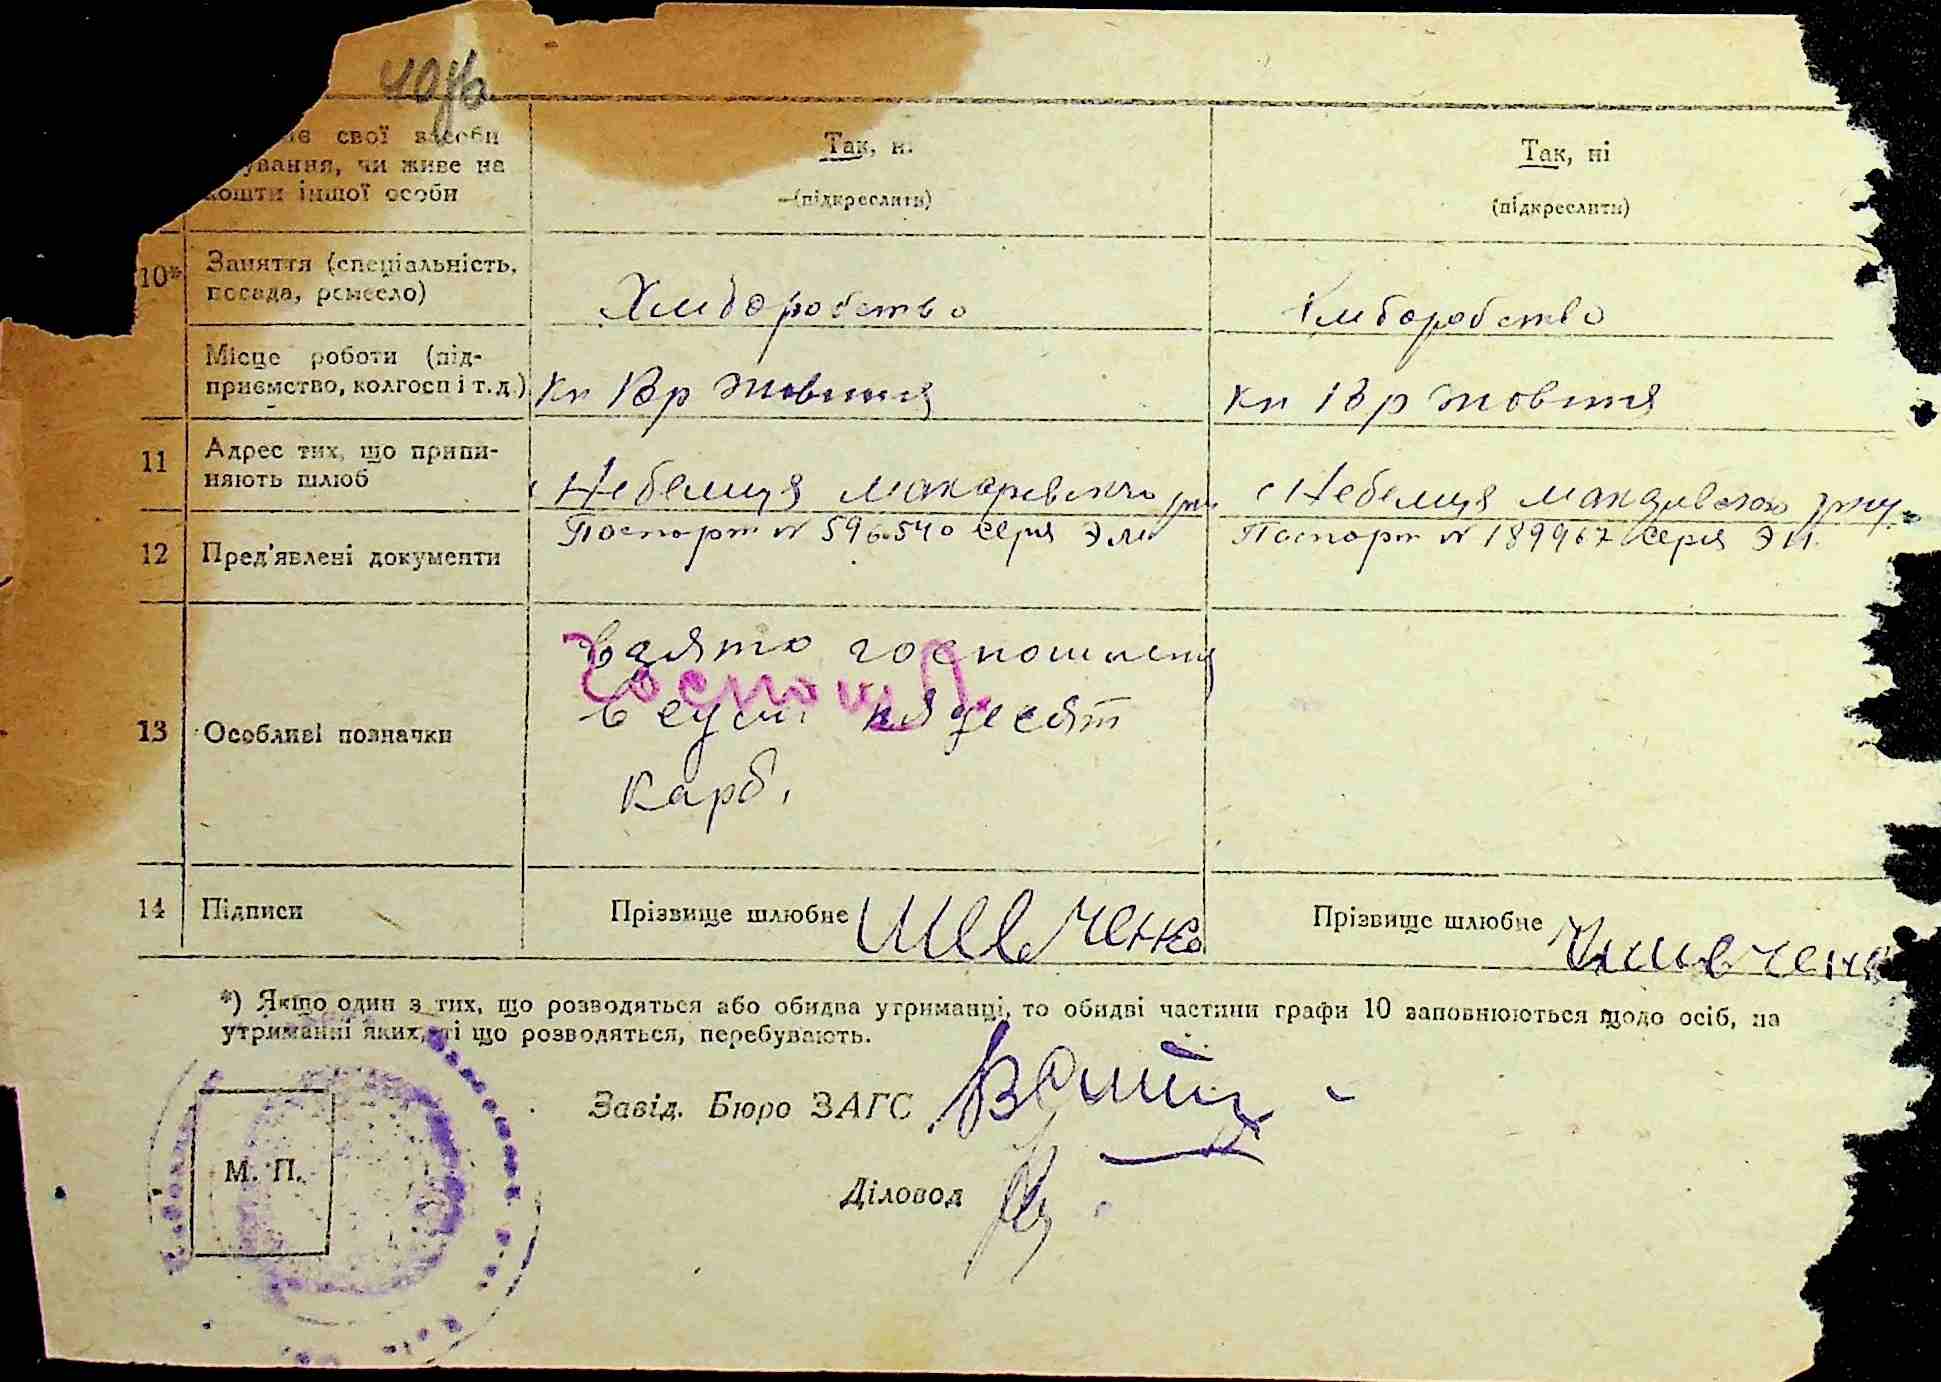 є свої засоби
ування, чи живе на
кошти іншої особи
Так, ні
(підкреслити)
Так, ні
(підкреслити)
10*
Заняття (спеціальність,
посада, ремесло)
Хліборобство
Хліборобство
Місце роботи (під-
приємство, колгосп і т. д.)
Кп 18 р Жовтня
Кп 18 р Жовтня
11
Адрес тих, що припи-
няють шлюб
с Небелиця Макарівського рну
с Небелиця Макарівського рну
12
Пред'явлені документи
Паспорт № 596540 серія
Паспорт № 189967 серія ЭИ
13
Особливі позначки
Взято госпошлени
Госпошл.
в сумі пядесят
карб.
14
Підписи
Прізвище шлюбне Шевченко
Прізвище шлюбне
*) Якщо один з тих, що розводяться або обидва утриманці, то обидві частини графи 10 заповнюються щодо осіб, на
утриманні яких, ті що розводяться, перебувають.
Завід. Бюро ЗАГС
М. П.
Діловод